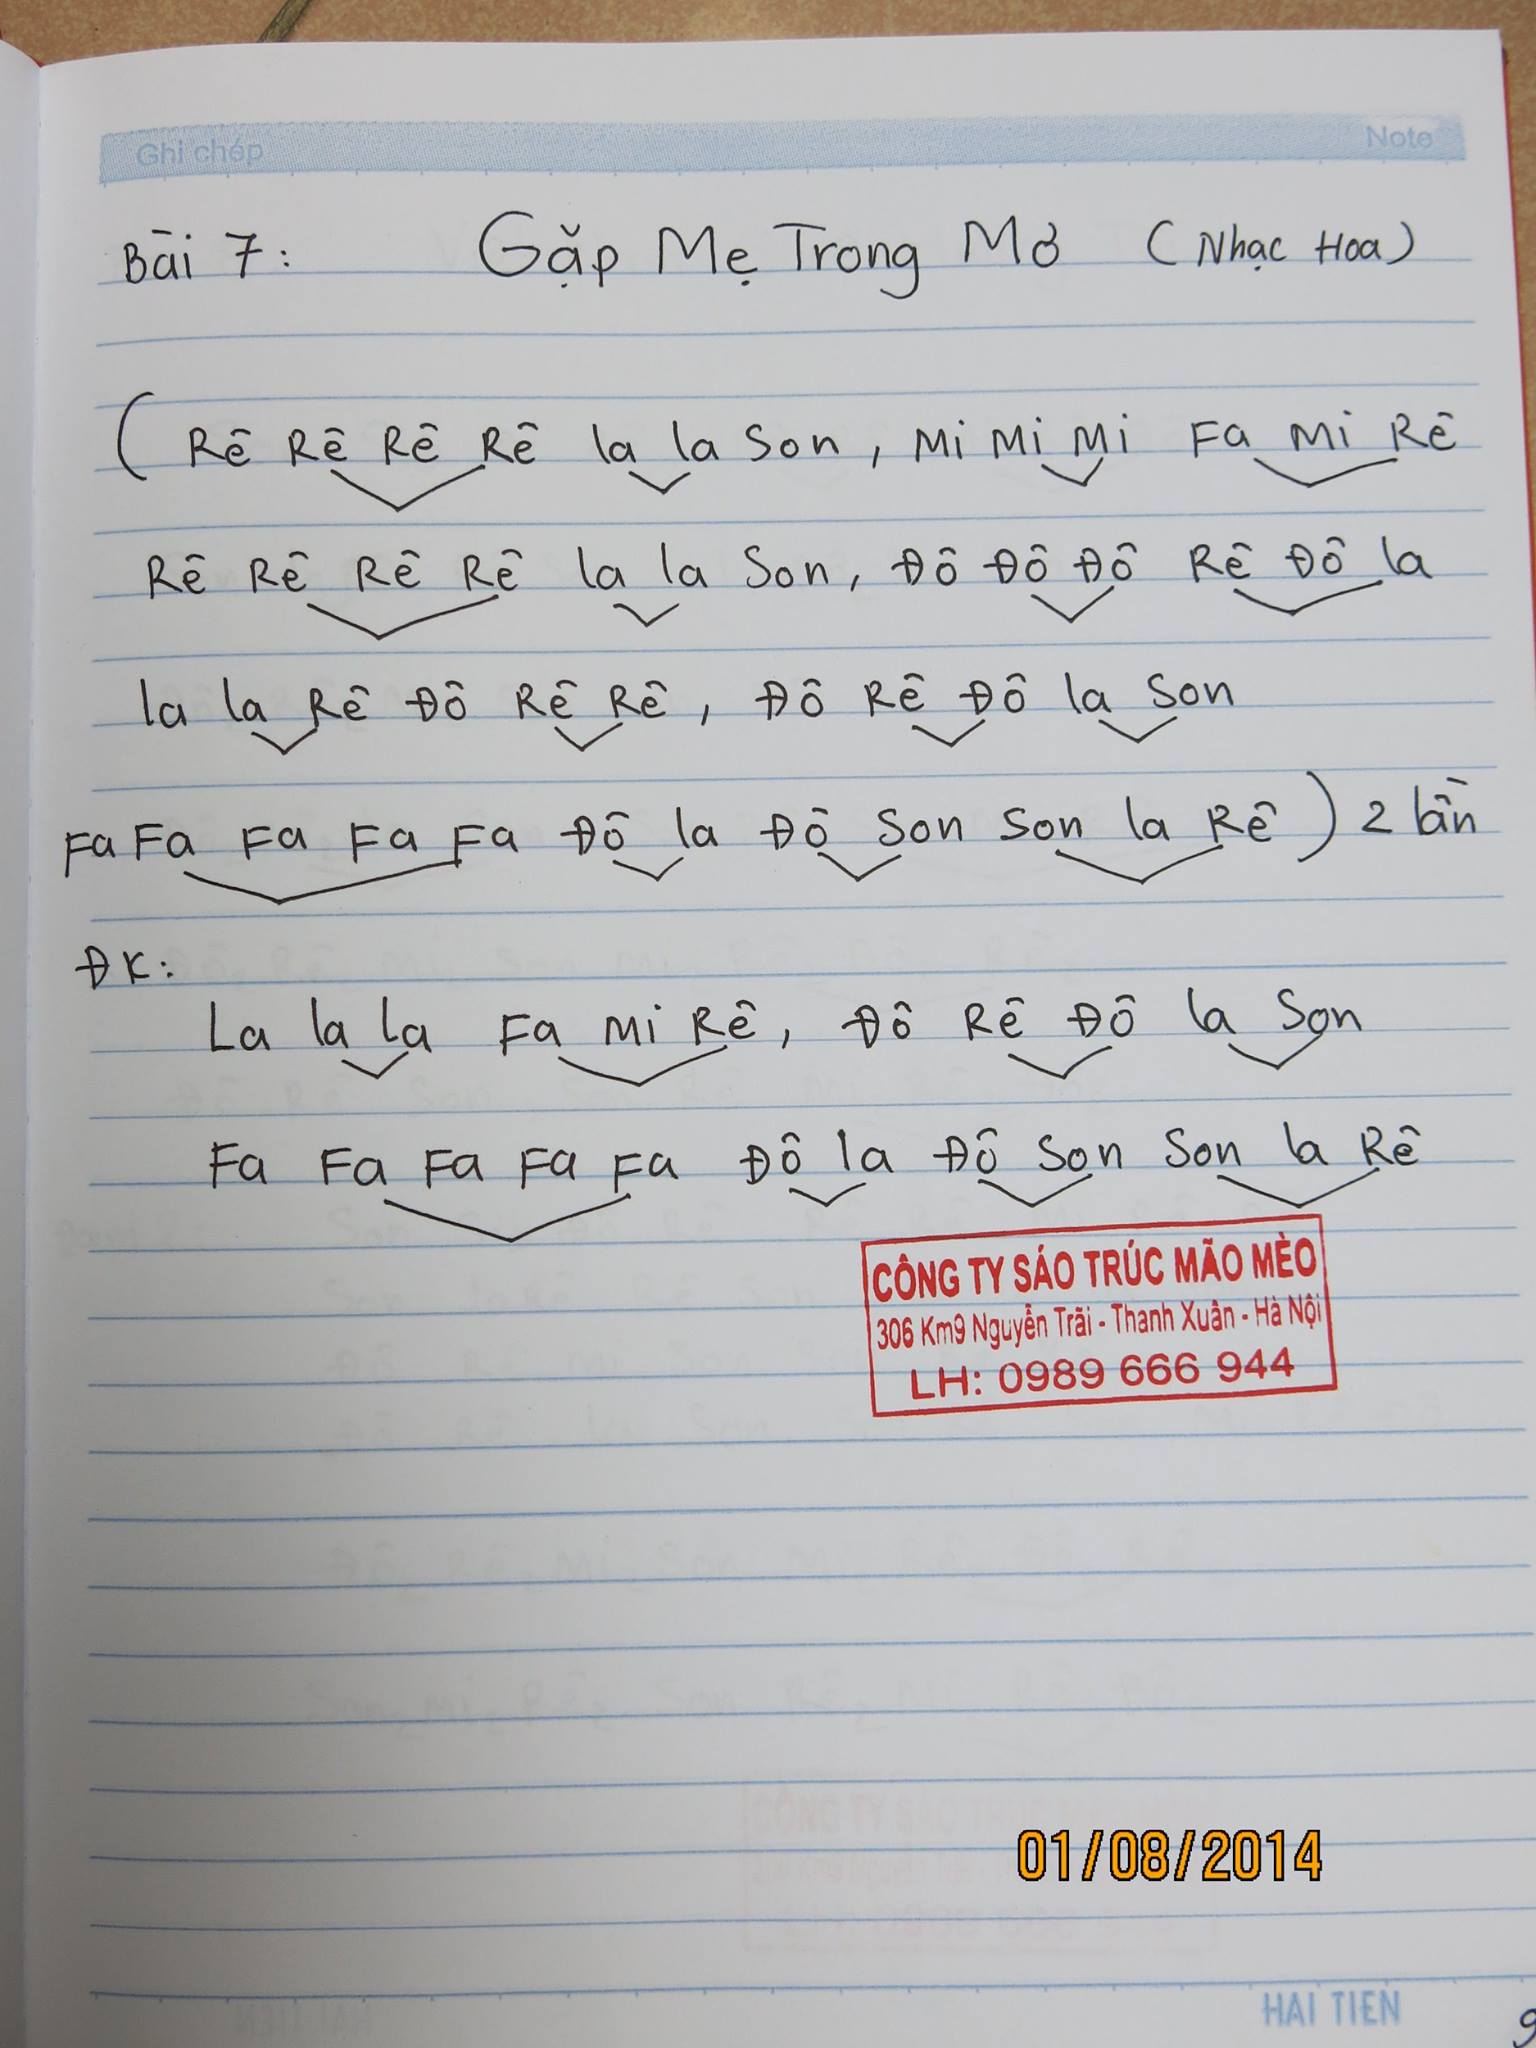 Ghi chép Note
Bài 7: Gặp Mẹ Trong Mơ (Nhạc Hoa)
( Rê Rê Rê Rê la la Son, Mi Mi Mi Fa Mi Rê
Rê Rê Rê Rê la la Son, Đô Đô Đô Rê Đô la
la la Rê Đô Rê Rê, Đô Rê Đô la Son
Fa Fa Fa Fa Fa Đô la Đô Son Son la Rê ) 2 lần
ĐK:
La la la Fa Mi Rê, Đô Rê Đô la Son
Fa Fa Fa Fa Fa Đô la Đô Son Son la Rê
CÔNG TY SÁO TRÚC MÃO MÈO
306 Km9 Nguyễn Trãi - Thanh Xuân - Hà Nội
LH: 0989 666 944
01/08/2014
HẢI TIẾN
9